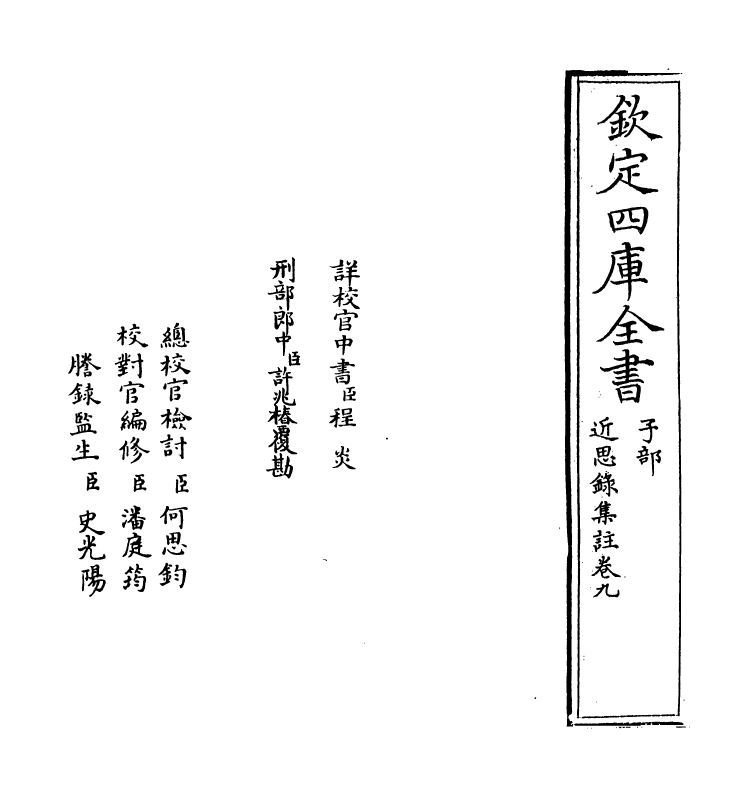 欽定四庫全書
子部
近思錄集註卷九
詳校官中書臣程炎
刑部郎中臣許兆椿覆勘
總校官檢討臣何思鈞
校對官編修臣潘庭筠
謄錄監生臣史光陽